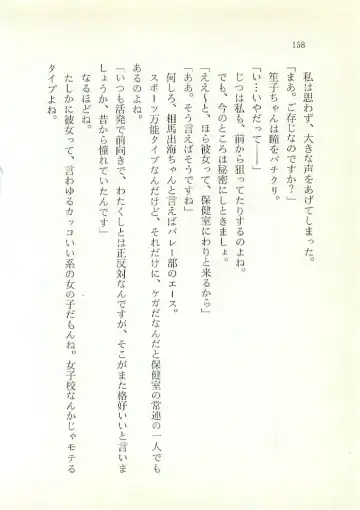 158
私は思わず、大きな声をあげてしまった。
「まあ。ご存じなのですか？」
笙子ちゃんは瞳をパチクリ。
「い…いやだって――」
じつは私も、前から狙ってたりするのよね。
でも、今のところは秘密にしときましょ。
「ええ～と、ほら彼女って、保健室にわりと来るから」
「ああ。そう言えばそうですね」
何しろ、相馬出海ちゃんと言えばバレー部のエース。
スポーツ万能タイプなんだけど、それだけに、ケガだなんだと保健室の常連の一人でも
あるのよね。
「いつも活発で前向きで、わたくしとは正反対なんですが、そこがまた格好いいと言いま
しょうか、昔から憧れていたんです」
なるほどね。
たしかに彼女って、言わゆるカッコいい系の女の子だもんね。女子校なんかじゃモテる
タイプよね。